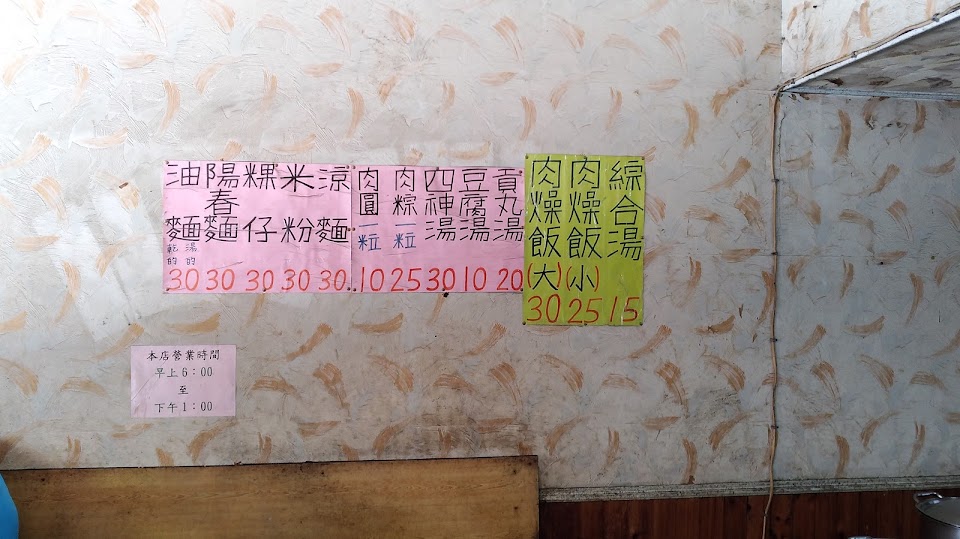 油麵
乾的
湯的
30
陽春麵
30
粿仔
30
米粉
30
涼麵
30
肉圓一粒
10
肉粽一粒
25
四神湯
30
豆腐湯
10
貢丸湯
20
肉燥飯(大)
30
肉燥飯(小)
25
綜合湯
15
本店營業時間
早上6：00
至
下午1：00